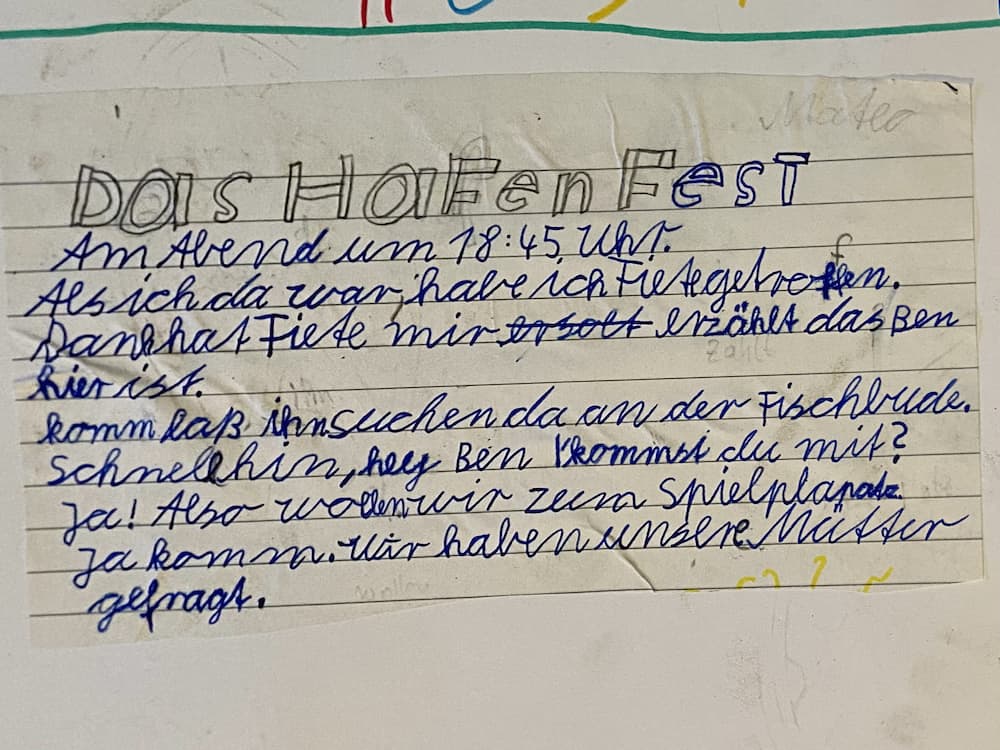 Mateo
Das Hafen Fest
Am Abend um 18:45 Uhr.
Als ich da war, habe ich Fiete getroffen.
Dann hat Fiete mir erzählt das Ben
hier ist.
komm laß ihn suchen da an der Fischbude.
Schnell hin, hey Ben kommst du mit?
Ja! Also wollen wir zum Spielplapatz.
Ja komm. Wir haben unsere Mütter
gefragt.